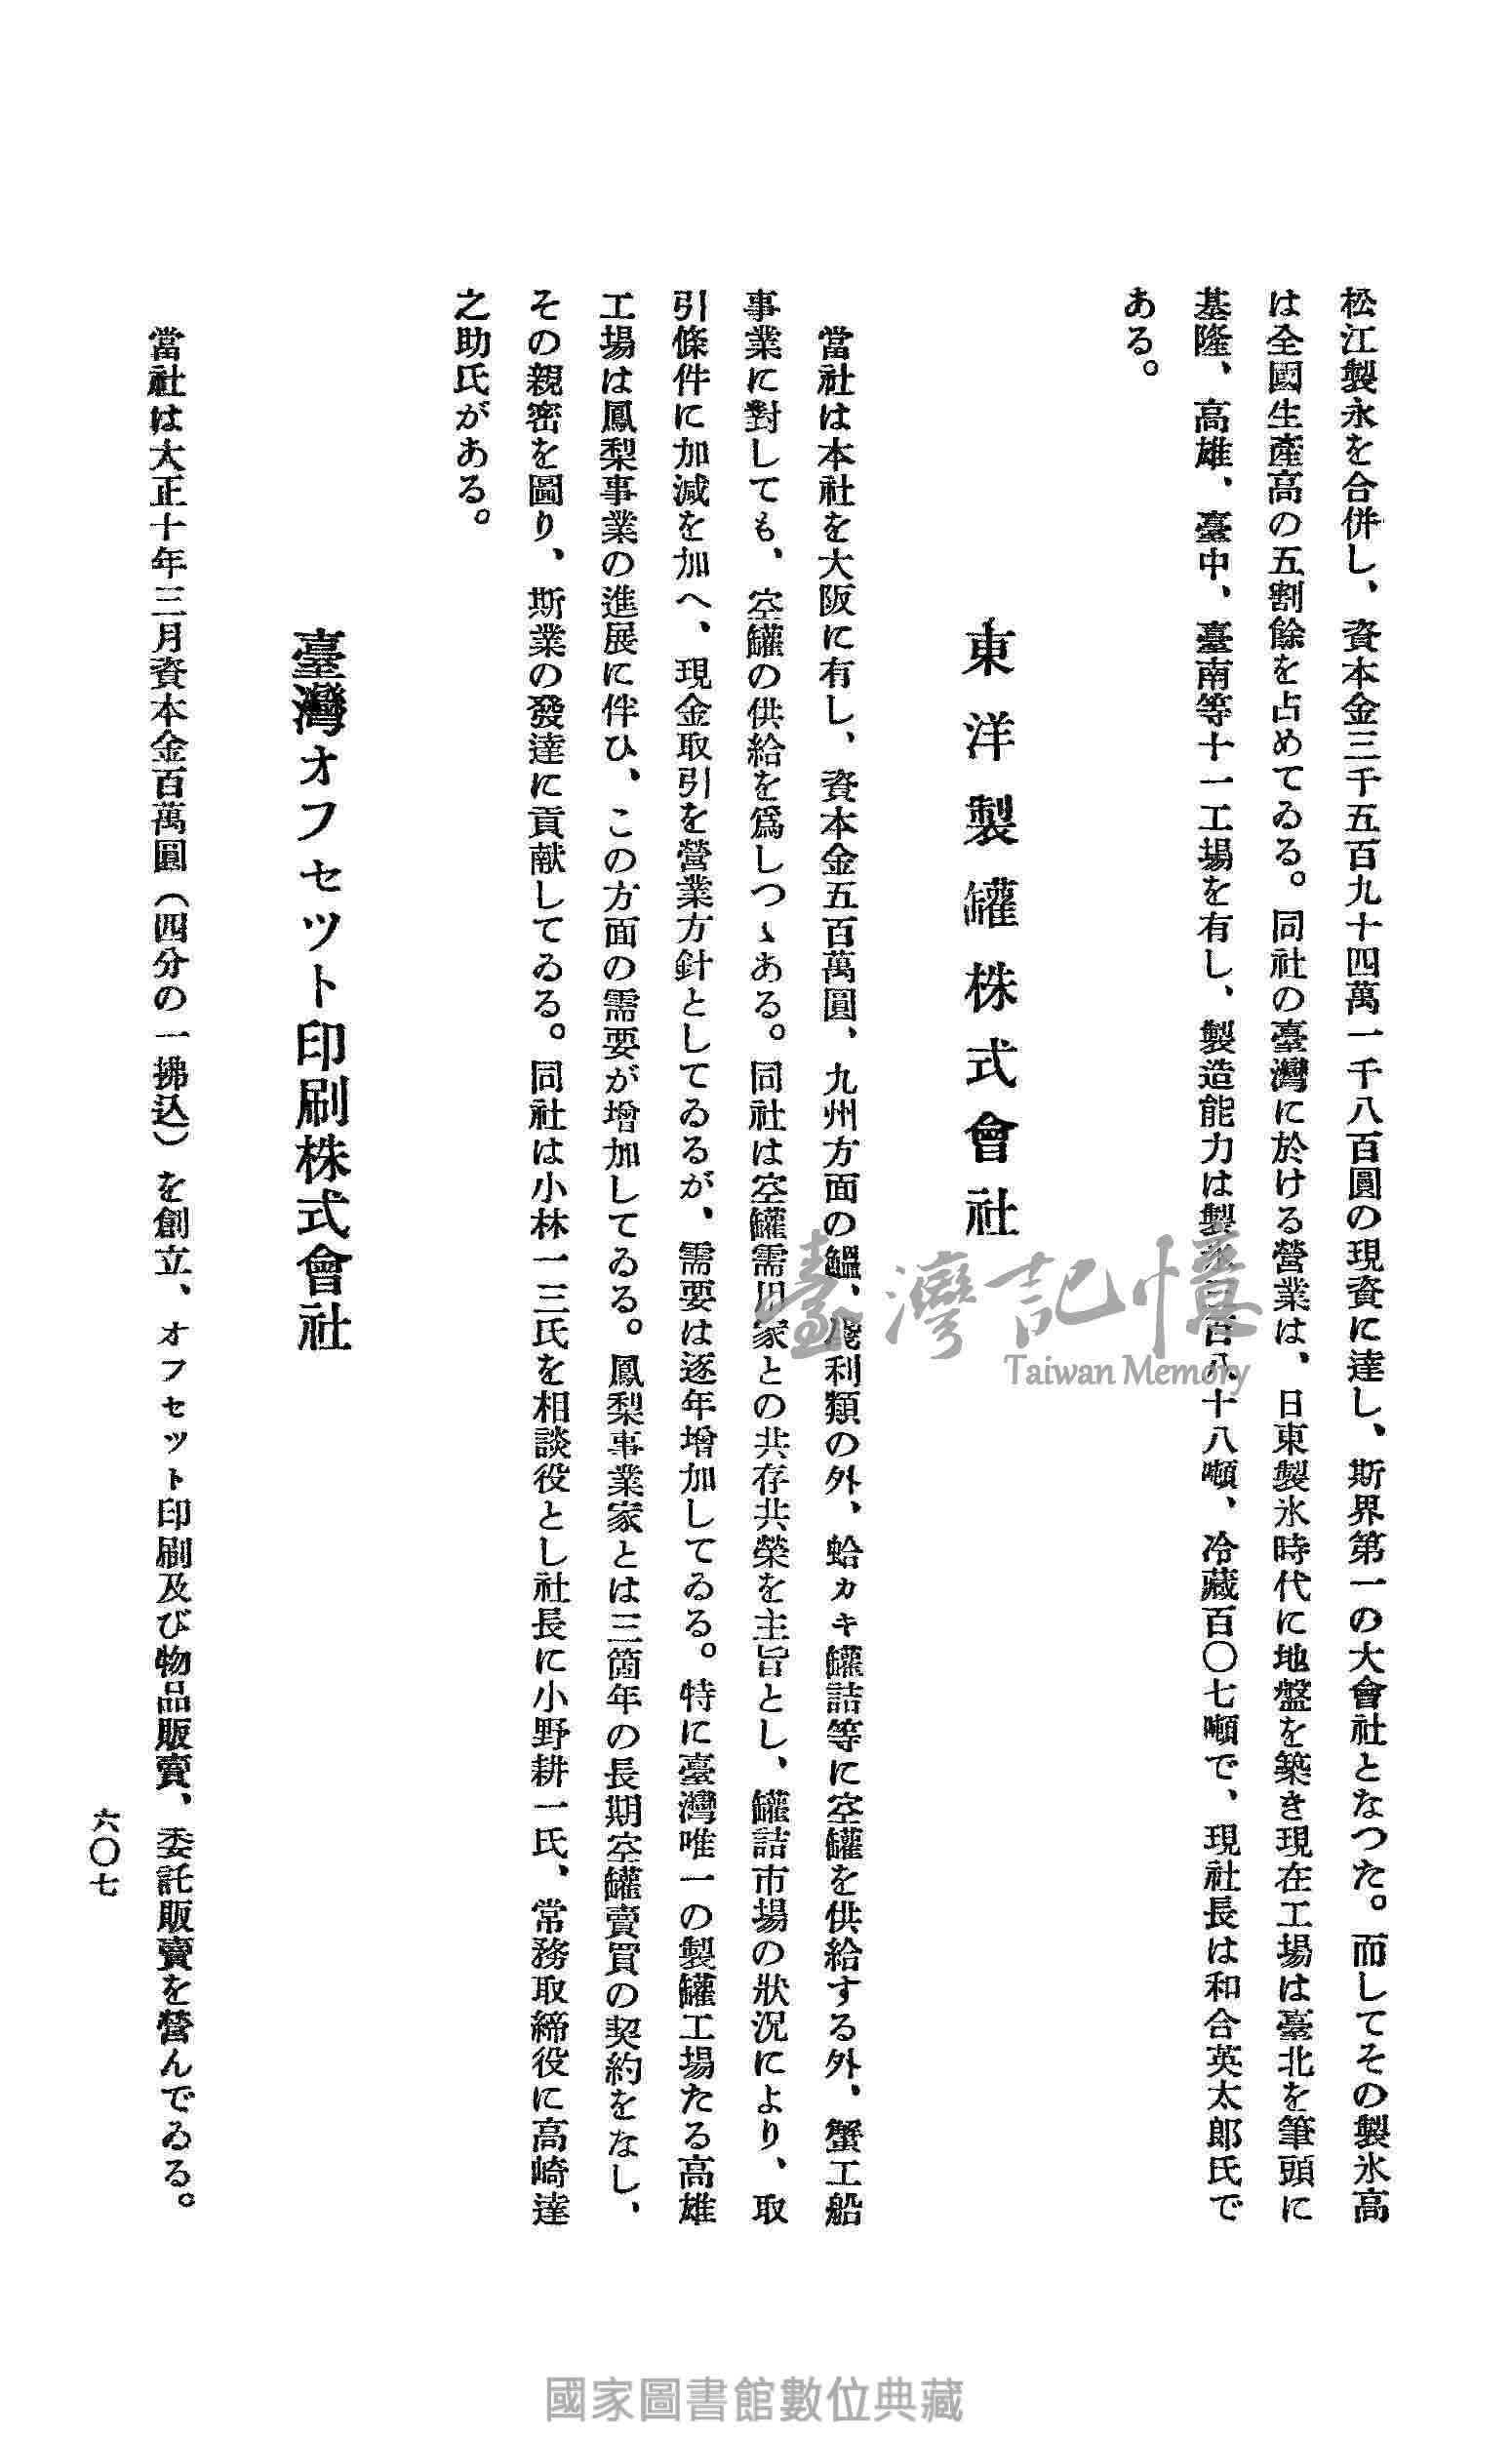 松江製永を合併し、資本金三千五百九十四萬一千八百圓の現資に達し、斯界第一の大會社となつた。而してその製氷高
は全國生產高の五割餘を占めてゐる。同社の臺灣に於ける營業は、日東製氷時代に地盤を築き現在工場は臺北を筆頭に
基隆、高雄、臺中、臺南等十一工場を有し、製造能力は製氷三百八十八噸、冷藏百〇七噸で、現社長は和合英太郎氏で
ある。
東洋製罐株式會社
當社は本社を大阪に有し、資本金五百萬圓、九州方面の鰮、魚利類の外、蛤カキ罐詰等に空罐を供給する外、蟹工船
事業に對しても、空罐の供給を爲しつゝある。同社は空罐需用家との共存共榮を主旨とし、罐詰市場の狀況により、取
引條件に加減を加へ、現金取引を營業方針としてゐるが、需要は逐年增加してゐる。特に臺灣唯一の製罐工場たる高雄
工場は鳳梨事業の進展に伴ひ、この方面の需要が增加してゐる。鳳梨事業家とは三箇年の長期空罐賣買の契約をなし、
その親密を圖り、斯業の發達に貢献してゐる。同社は小林一三氏を相談役とし社長に小野耕一氏、常務取締役に高崎達
之助氏がある。
臺灣オフセツト印刷株式會社
當社は大正十年三月資本金百萬圓（四分の一拂込）を創立、オフセツト印刷及び物品販賣、委託販賣を營んでゐる。
六〇七
臺灣記憶
Taiwan Memory
國家圖書館數位典藏